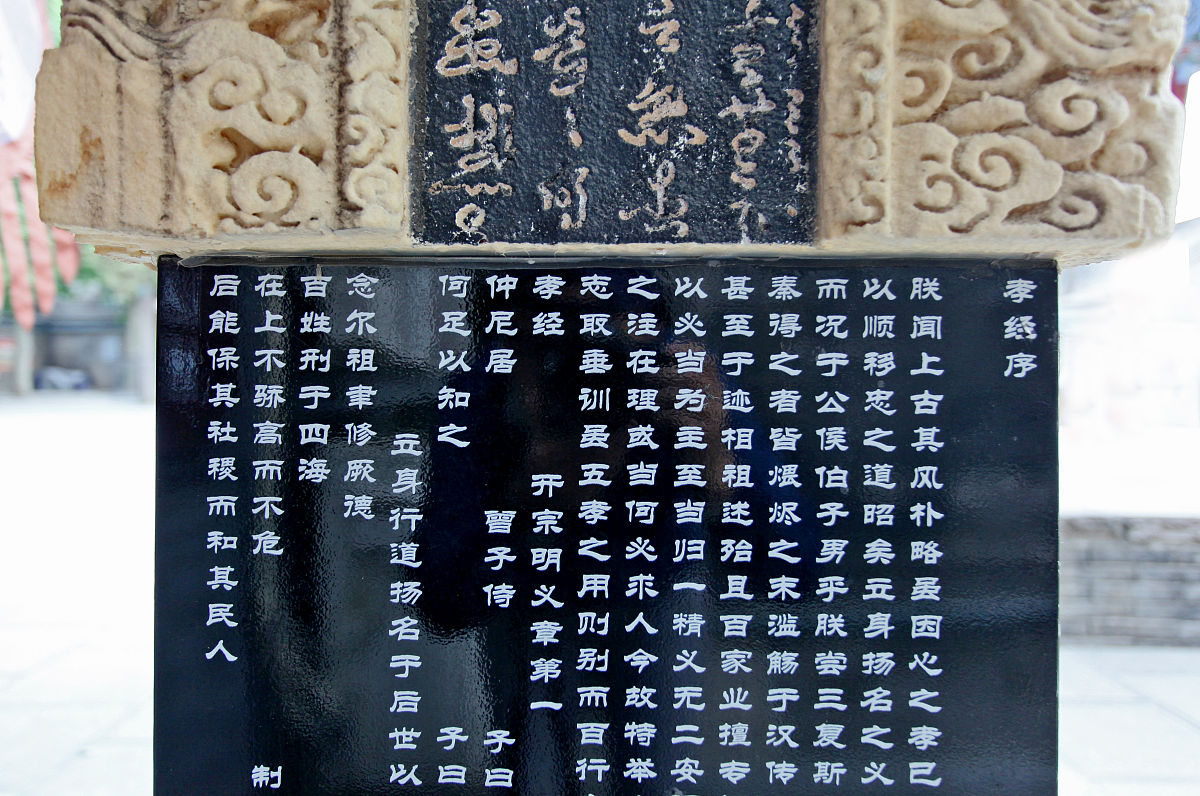 孝经序
朕闻上古其风朴略虽因心之孝已
以顺移忠之道昭矣立身扬名之义
而况于公侯伯子男乎朕尝三复斯
秦得之者皆煨烬之末滥觞于汉传
甚至于迹相祖述殆且百家业擅专
以必当为主至当归一精义无二安
之注在理或当何必求人今故特举
志取垂训虽五孝之用则别而百行
孝经 开宗明义章第一
仲尼居 曾子侍 子曰
何足以知之 子曰
立身行道扬名于后世以
念尔祖聿修厥德
百姓刑于四海
在上不骄高而不危 制
后能保其社稷而和其民人